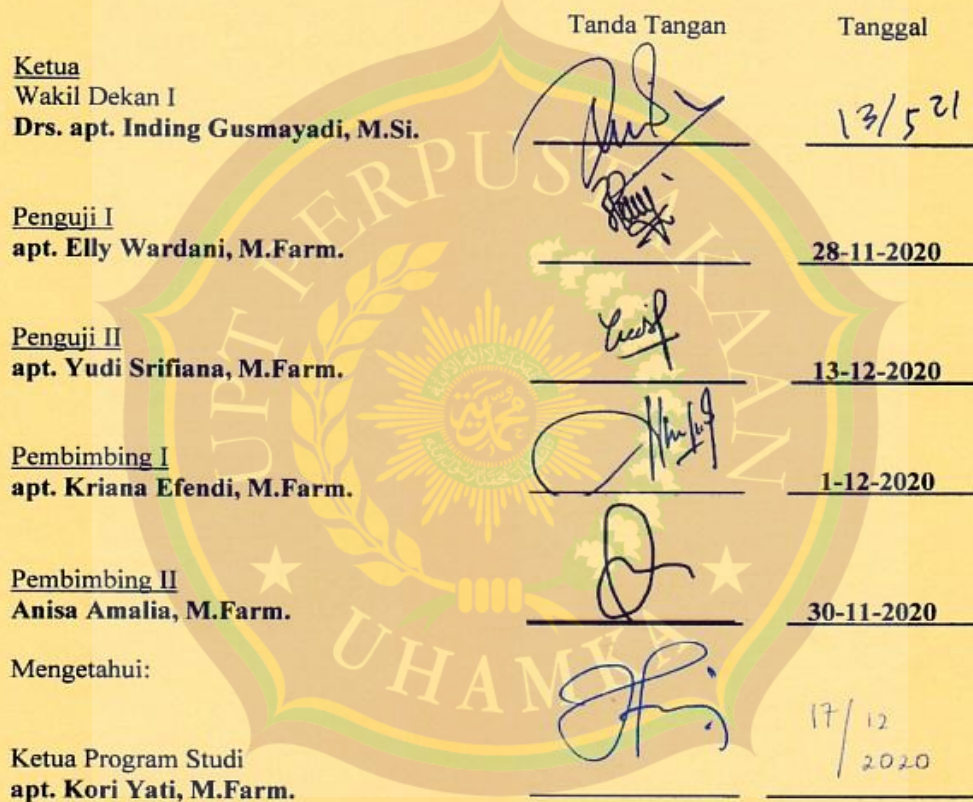 Tanda Tangan Tanggal
Ketua
Wakil Dekan I
Drs. apt. Inding Gusmayadi, M.Si.
13/5 21
Penguji I
apt. Elly Wardani, M.Farm.
28-11-2020
Penguji II
apt. Yudi Srifiana, M.Farm.
13-12-2020
Pembimbing I
apt. Kriana Efendi, M.Farm.
1-12-2020
Pembimbing II
Anisa Amalia, M.Farm.
30-11-2020
Mengetahui:
Ketua Program Studi
apt. Kori Yati, M.Farm.
17/12
2020
UPT PERPUSTAKAAN
UHAMKA